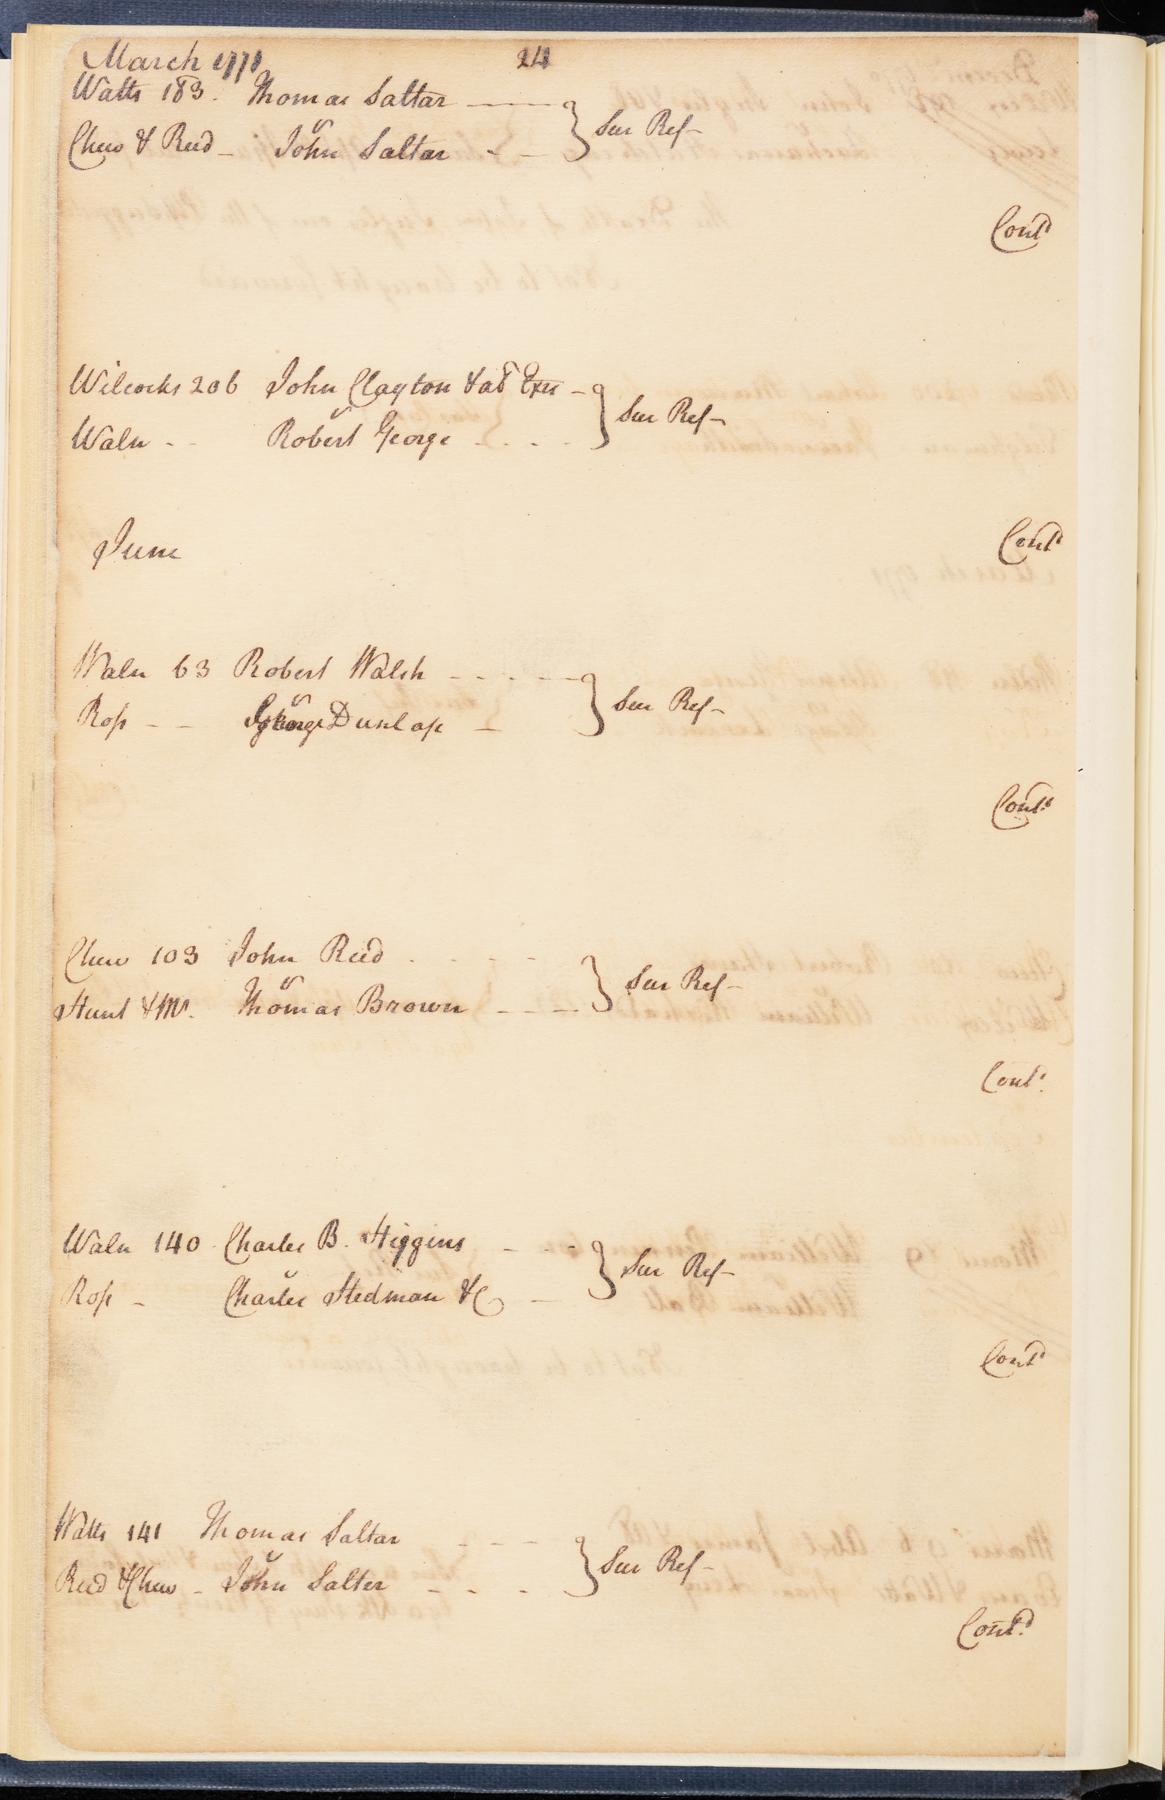 March 1771 24
Watts 183. Thomas Saltar
Chew & Reed — John Saltar — } Sur Ref—
v
Contd
Wilcocks 206 John Clayton & al Exrs — } Sur Ref—
v
Waln - - Robert George - - - -
June
Contd
Waln 63 Robert Walsh - - - - - } Sur Ref—
v
Ross - - George Dunlap —
Contd
Chew 103 John Reed - - - - } Sur Ref—
v
Hunt & Mr. Thomas Brown - - - -
Contd
Waln 140 Charles B. Higgins - - - } Sur Ref—
v
Ross - Charles Stedman &C —
Contd
Watts 141 Thomas Saltar - - - } Sur Ref—
v
Reed & Chew - John Salter - - - -
Contd